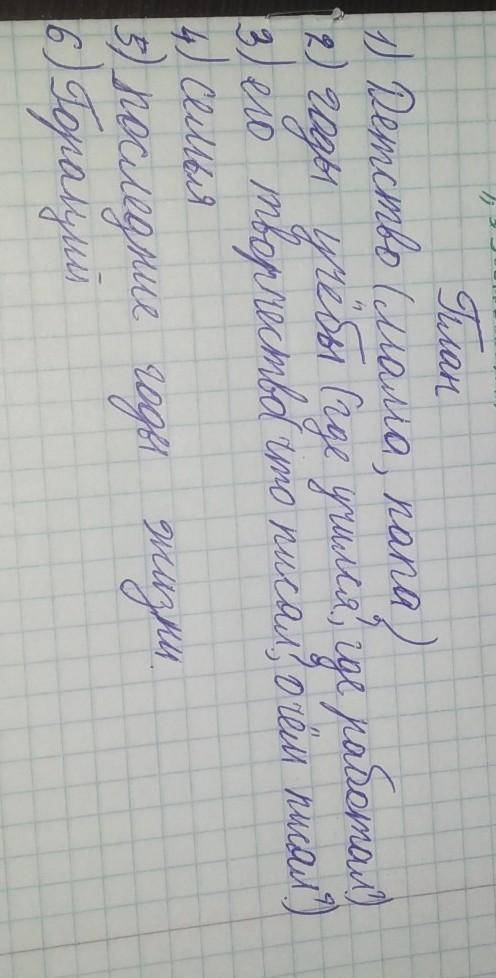 План
1) Детство (мама, папа)
2) годы учёбы (где учился, где работал?)
3) его творчество (что писал, о чём писал?)
4) семья
5) последние годы жизни.
6)